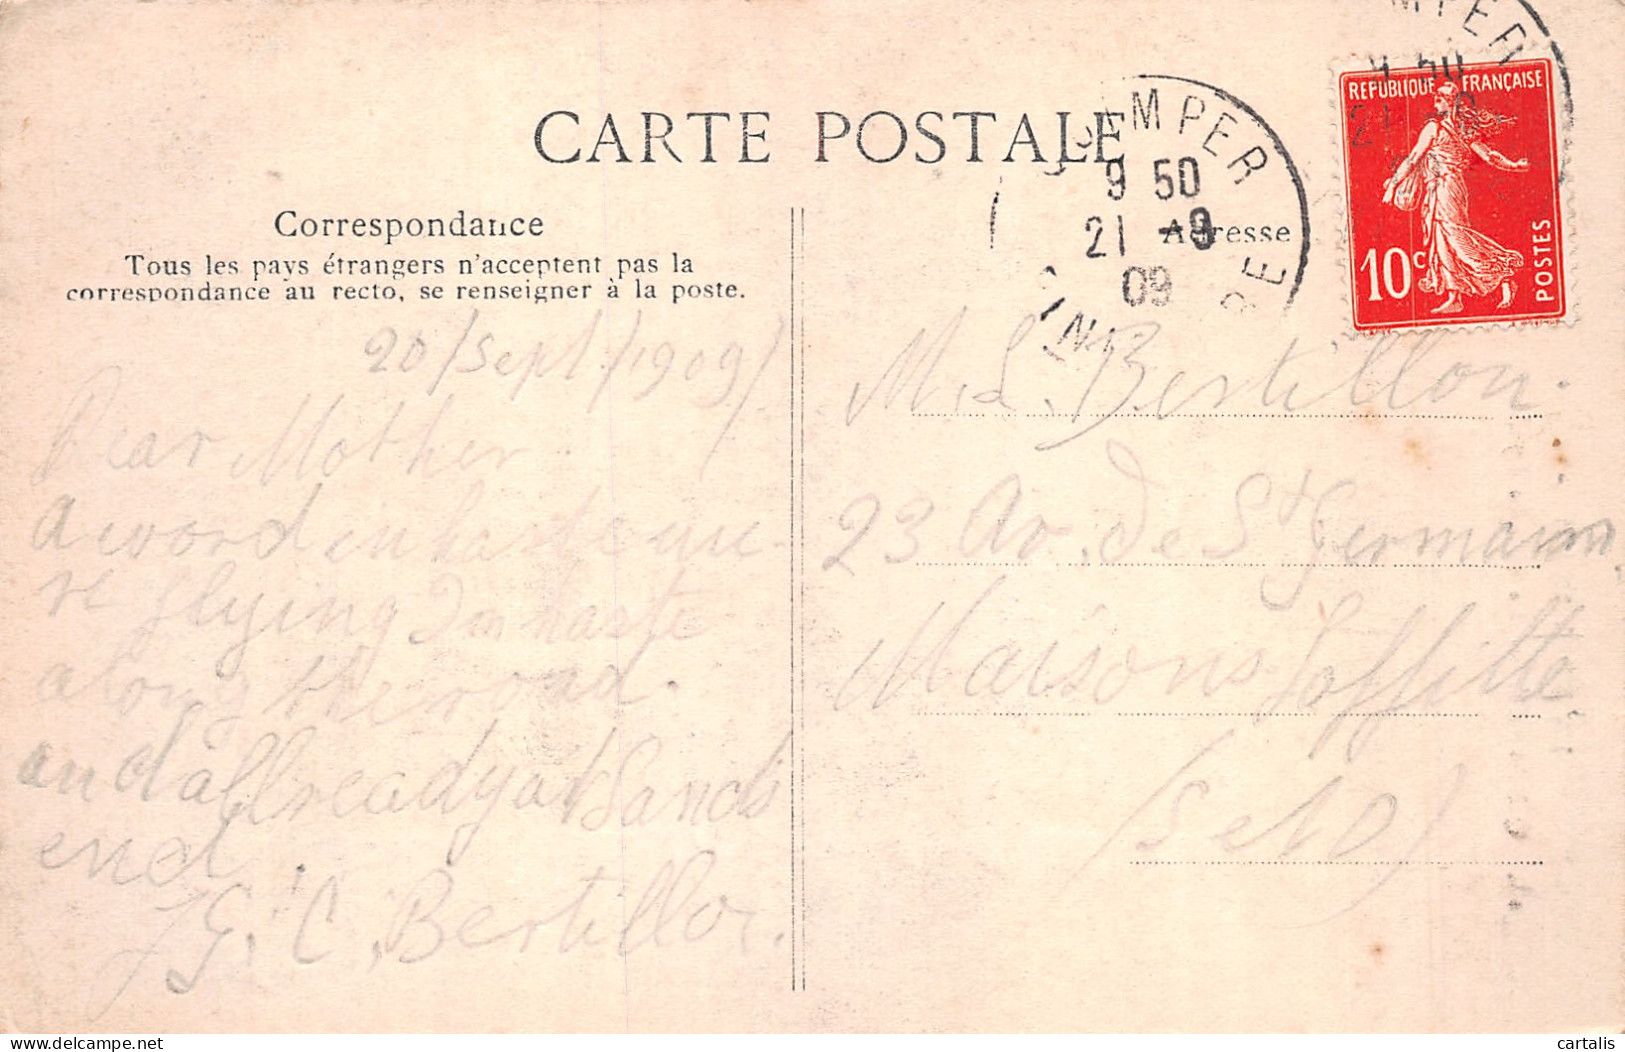 CARTE POSTALE
Correspondance
Tous les pays étrangers n'acceptent pas la
correspondance au recto, se renseigner à la poste.
20/Sept./1909/
Dear Mother
a word in haste
flying in haste
along the road.
and allready at Sands
end
G. C. Bertillon.
QUIMPER
9 50
21 -9
09
FINISTERE
Adresse
REPUBLIQUE FRANÇAISE
10c
POSTES
M. L. Bertillon.
23 Av. de St Germain
Maisons Laffitte
(S et O)
cartalis